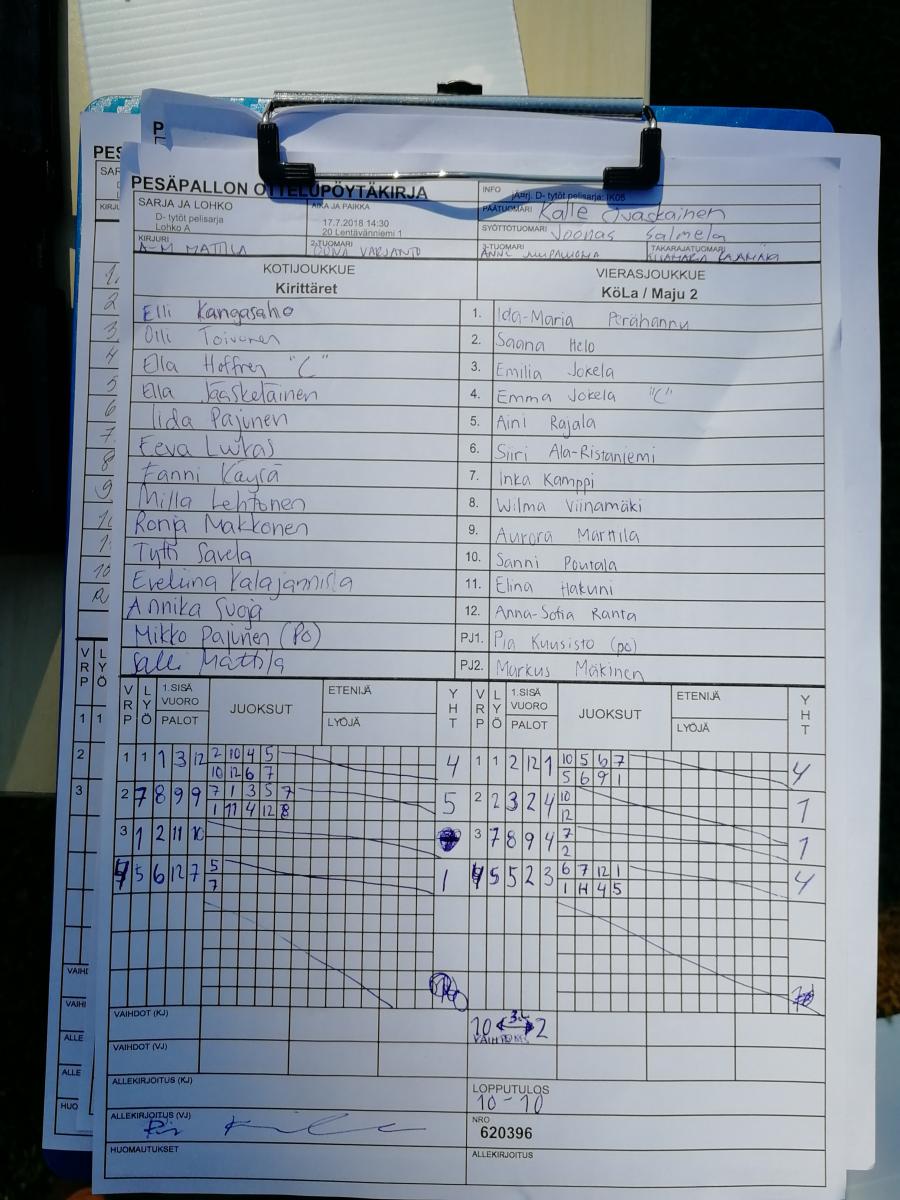 P
PESÄPALLON OTTELUPÖYTÄKIRJA
INFO
D- tytöt pelisarja: IK06
SARJA JA LOHKO
D- tytöt pelisarja
Lohko A
AIKA JA PAIKKA
17.7.2018 14:30
20 Lentävänniemi 1
PÄÄTUOMARI Kalle
SYÖTTÖTUOMARI Joonas Salmela
KIRJURI
A-M MATTILA
2-TUOMARI
3-TUOMARI
TAKARAJATUOMARI
KOTIJOUKKUE
Kirittäret
VIERASJOUKKUE
KöLa / Maju 2
Elli Kangasaho 1. Ida-Maria Perähannu
Olli Toivonen 2. Saana Helo
Ella Hoffren "C" 3. Emilia Jokela
Ella Jääskeläinen 4. Emma Jokela "C"
Iida Pajunen 5. Aini Rajala
Eeva Lukas 6. Siiri Ala-Ristaniemi
Fanni Käyrä 7. Inka Kamppi
Milla Lehtonen 8. Wilma Viinamäki
Ronja Makkonen 9. Aurora Marttila
Tytti Savela 10. Sanni Poutala
Eveliina Kalajanniska 11. Elina Hakuni
Annika Suoja 12. Anna-Sofia Ranta
Mikko Pajunen (Po) PJ1. Pia Kuusisto (po)
Salli Mattila PJ2. Markus Mäkinen
VRP LYÖ 1.SISÄ VUORO PALOT JUOKSUT ETENIJÄ LYÖJÄ YHT VRP LYÖ 1.SISÄ VUORO PALOT JUOKSUT ETENIJÄ LYÖJÄ YHT
1 1 1 3 12 2 10 4 5 4 1 1 2 12 1 10 5 6 7 4
10 12 6 7 5 6 9 1
2 7 8 9 9 7 1 3 5 7 5 2 2 3 2 4 10 1
1 11 4 12 8 12
3 1 2 11 10 3 7 8 9 4 7 1
2
4 5 6 12 7 5 1 4 5 5 2 3 6 7 12 1 4
7 1 11 4 5
VAIHDOT (KJ)
10 ↔ 2
VAIHDOT (VJ)
ALLEKIRJOITUS (KJ)
LOPPUTULOS
10 - 10
ALLEKIRJOITUS (VJ)
NRO
620396
HUOMAUTUKSET
ALLEKIRJOITUS